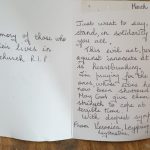 mory of those who
lives in
church. R.I.P
March
Just want to say,
stand in solidarity
you all.
This evil act,
against innocents
is heartbreaking.
I'm praying for the
ones whose lives have
now been shattered
May God give them
strength to cope at
terrible time.
With deepest sympathy
From Veronica